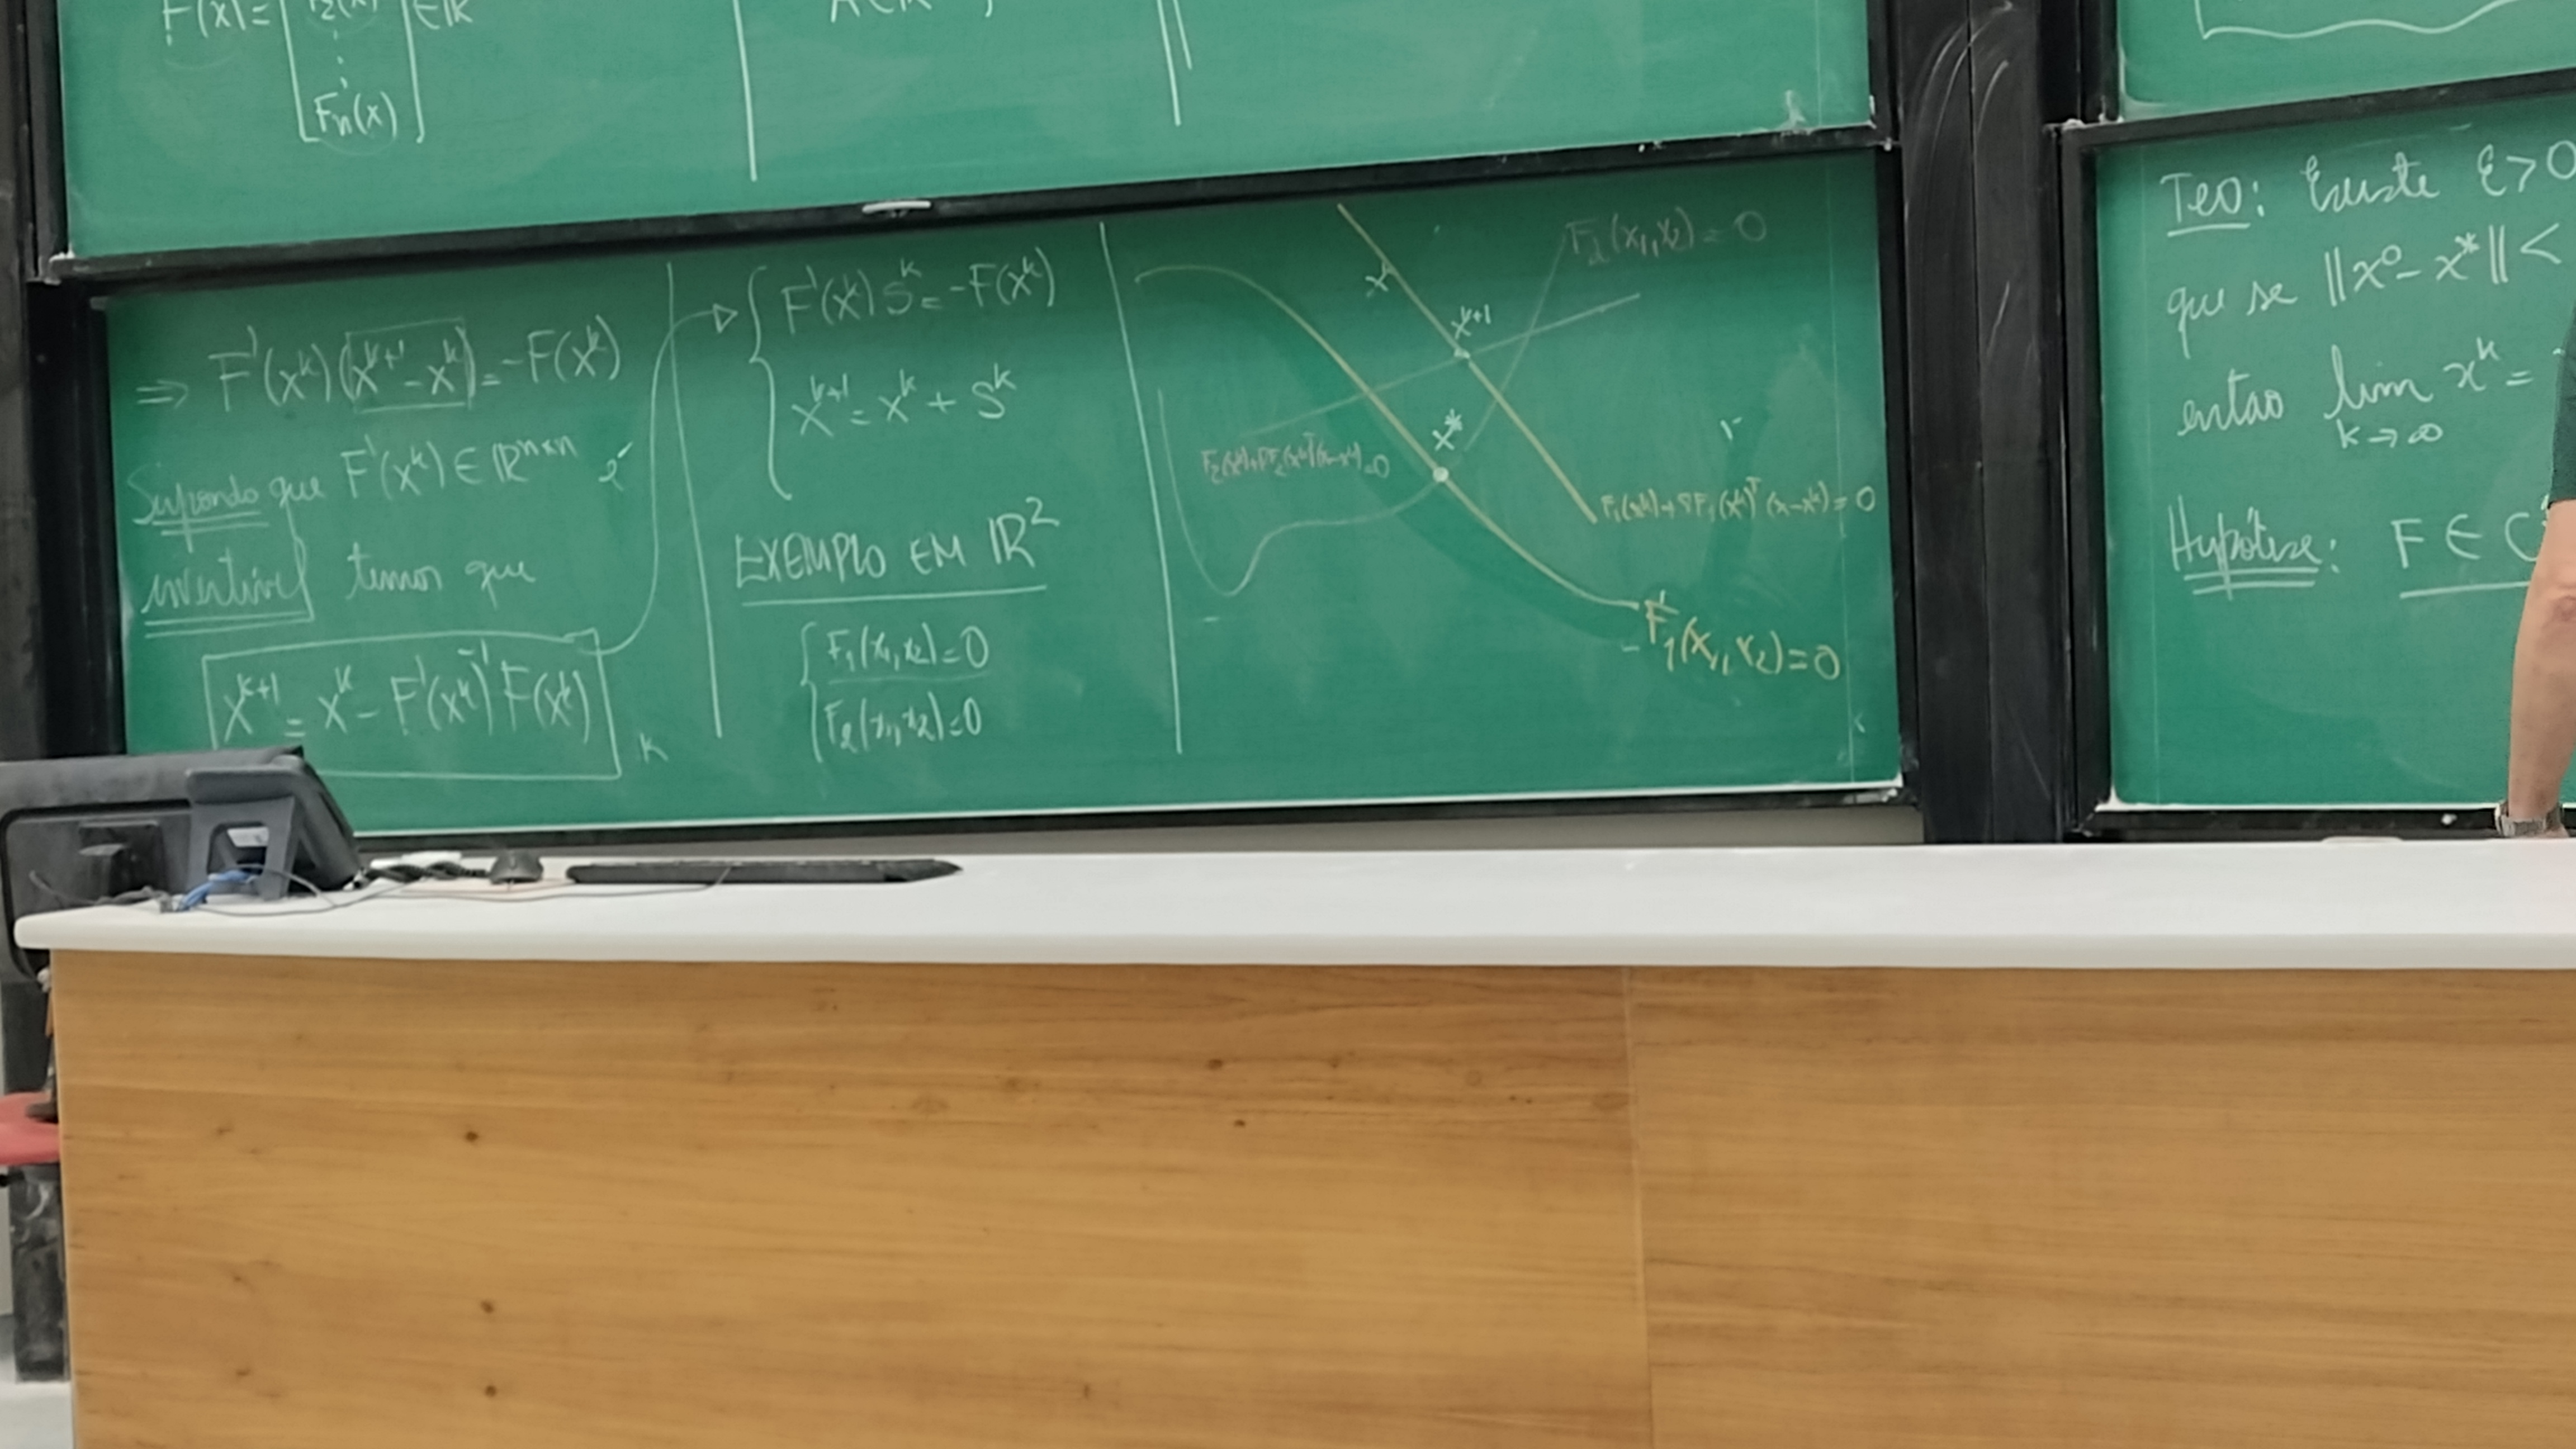 F(x)=
Fn(x)
⇒ F'(x^k)(x^{k+1}-x^k)=-F(x^k)
Supondo que F'(x^k)∈ℝ^{n×n} é
invertível temos que
x^{k+1}=x^k-F'(x^k)^{-1}F(x^k)
k
F'(x^k)S^k=-F(x^k)
x^{k+1}=x^k+S^k
EXEMPLO EM ℝ^2
F_1(x_1,x_2)=0
F_2(x_1,x_2)=0
F_2(x_1,x_2)=0
x^{k+1}
x^*
F_2(x^k)+∇F_2(x^k)^T(x-x^k)=0
F_1(x^k)+∇F_1(x^k)^T(x-x^k)=0
F_1(x_1,x_2)=0
Teo: Existe ε>0
que se ||x^0-x^*||<
então lim x^k=
k→∞
Hypótese: F∈C